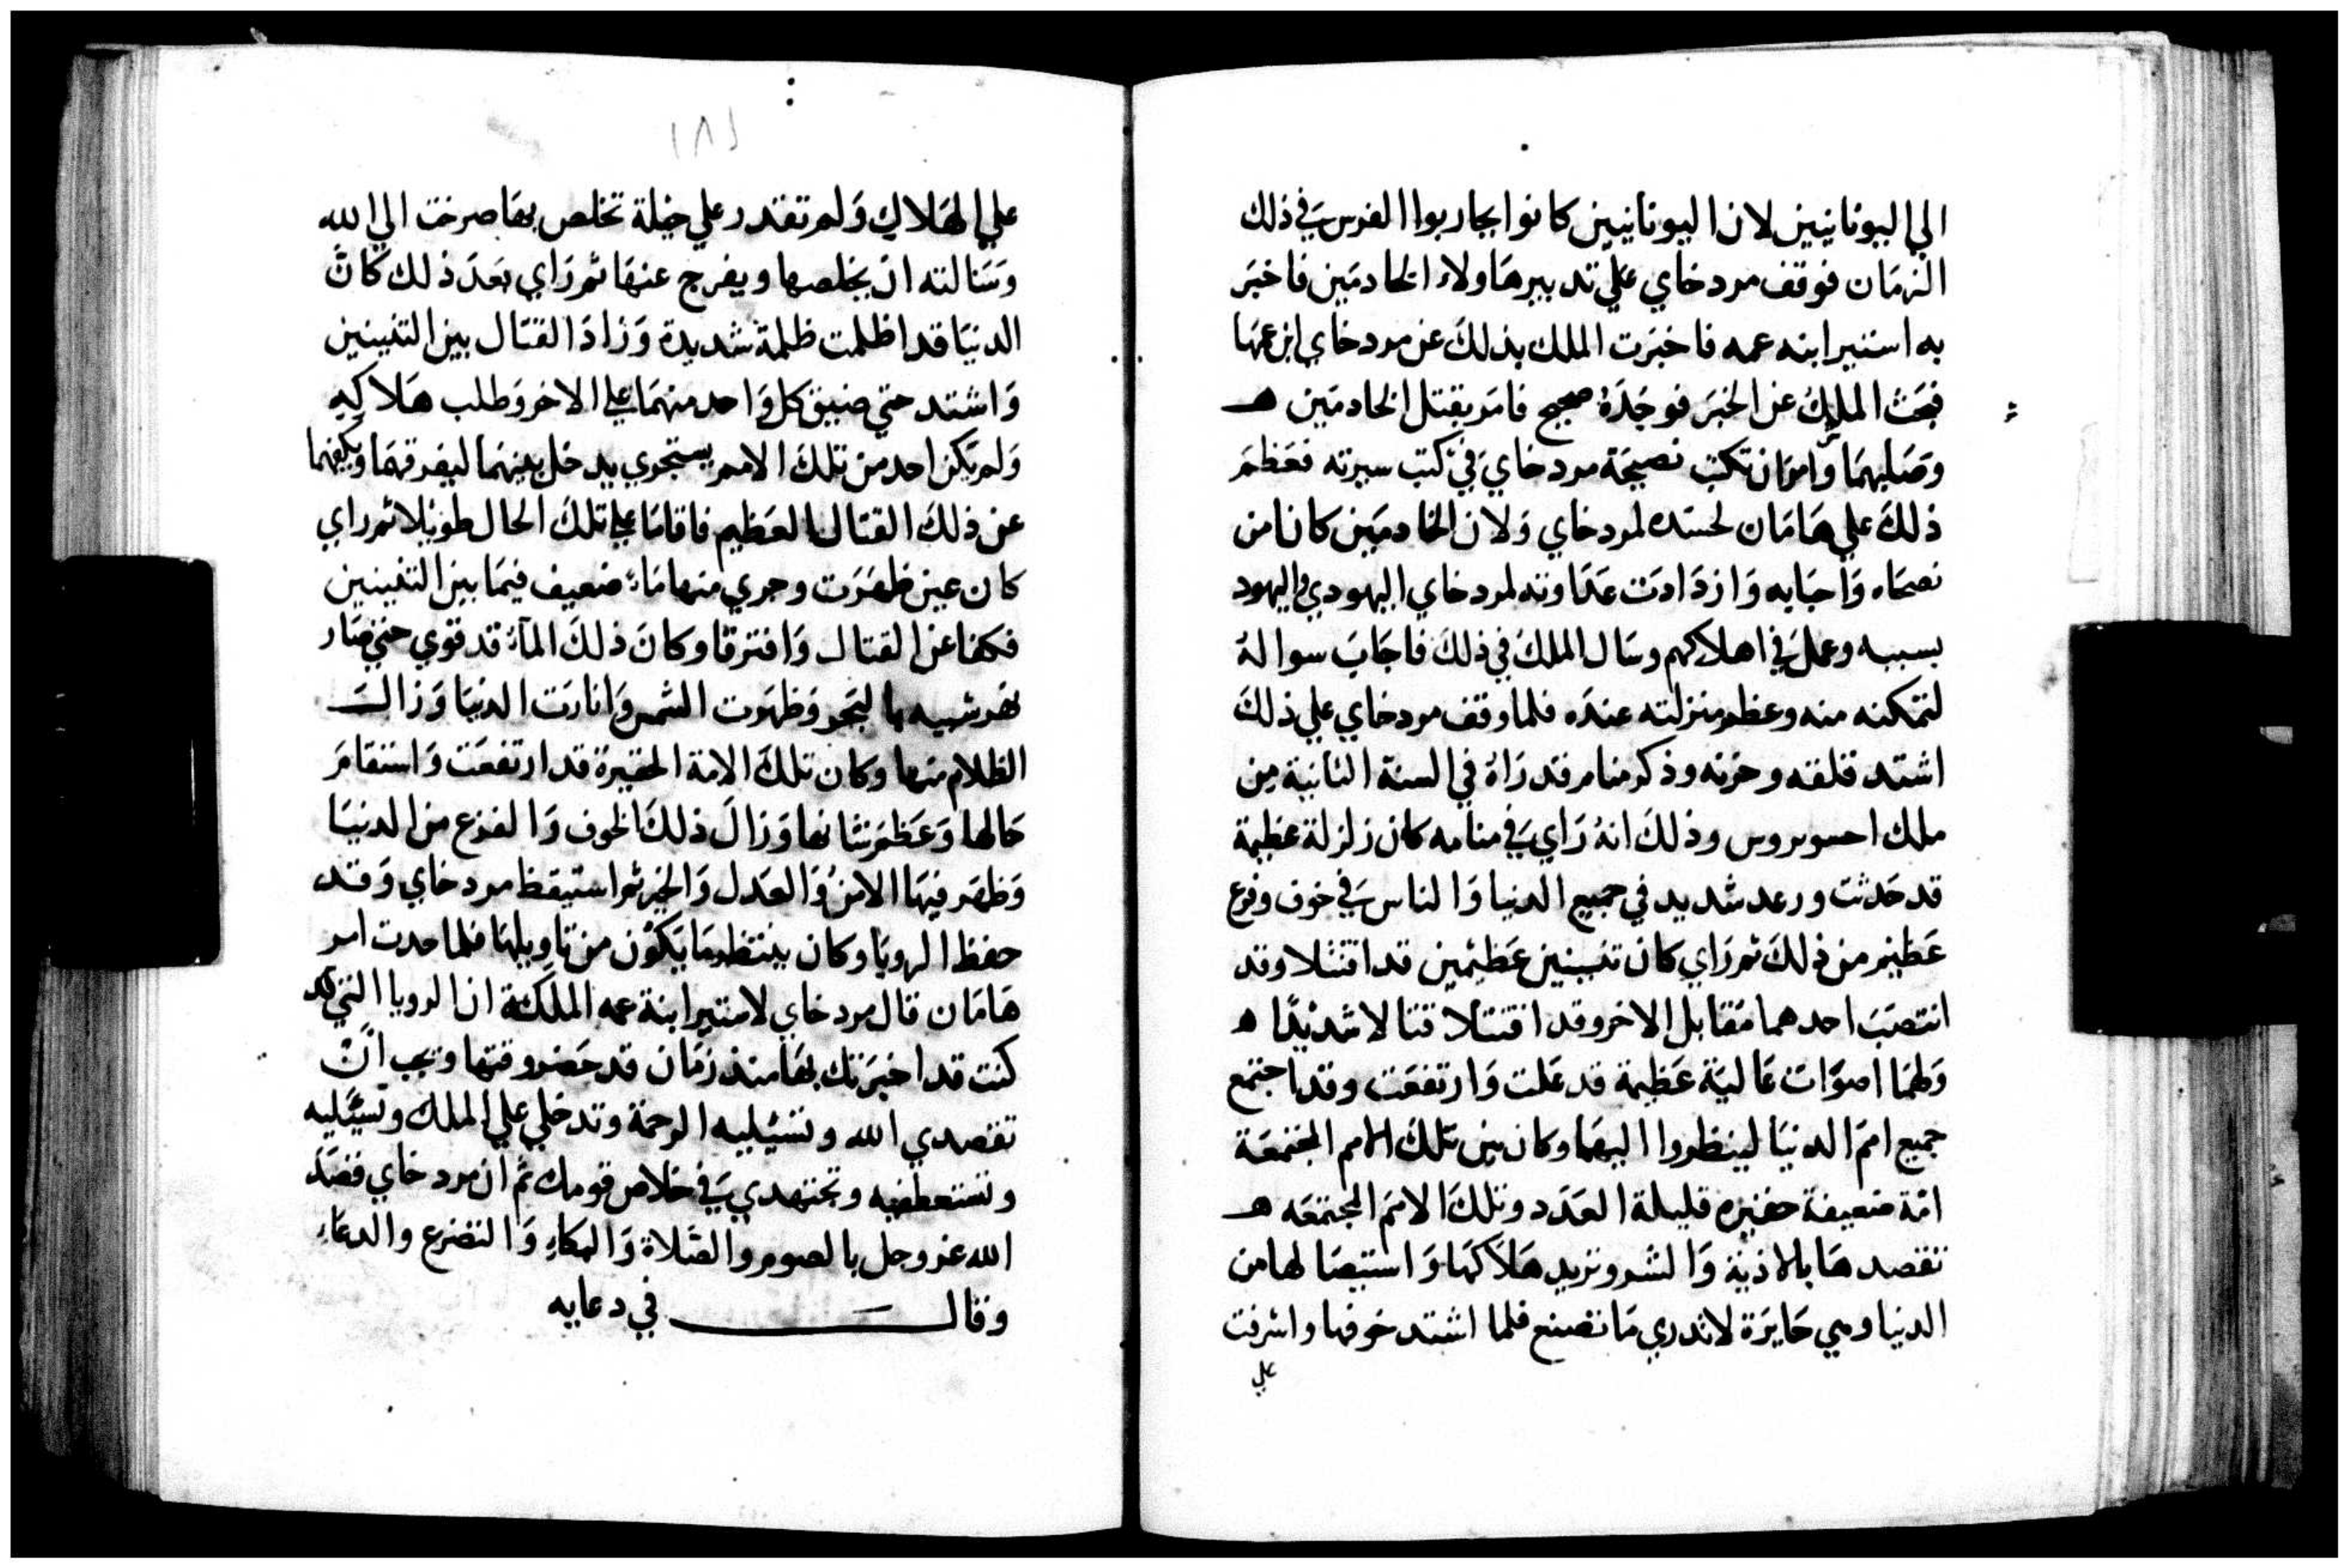 الي اليونانيين لان اليونانيين كانوا يحاربوا الفرس في ذلك
الزمان فوقف مردخاي علي تدبير هاولاء الخادمين فاخبر
به استير ابنه عمه فاخبرت الملك بذلك عن مردخاي ابن عمها
فبحث الملك عن الخبر فوجده صحيح فامر بقتل الخادمين ه
وصلبهما وامر ان تكتب نصيحة مردخاي في كتب سيرته فعظم
ذلك علي هامان لحسده لمردخاي ولان الخادمين كانا من
نصحاه واحبابه وازدادت عداوته لمردخاي اليهودي واليهود
بسببه وعمل في اهلاكهم وسال الملك في ذلك فاجاب سواله
لتمكنه منه وعظم منزلته عنده فلما وقف مردخاي علي ذلك
اشتد قلقه وحزنه وذكر منام قد راه في السنة الثانية من
ملك احسويروس وذلك انه راي في منامه كان زلزلة عظيمة
قد حدثت ورعد شديد في جميع الدنيا والناس في خوف وفزع
عظيم من ذلك ثم راي كان تنينين عظيمين قد اقتتلا وقد
انتصب احدهما مقابل الاخر وقد اقتتلا قتالا شديدا ه
ولهما اصوات عالية عظيمة قد علت وارتفعت وقد اجتمع
جميع امم الدنيا لينظروا اليهما وكان بين تلك الامم المجتمعة
امة ضعيفة حقيره قليلة العدد وتلك الامم المجتمعه ه
تقصدها بالاذية والشر وتريد هلاكها واستيصالها من
الدنيا وهي حايرة لا تدري ما تصنع فلما اشتد خوفها واشرفت
علي
١٨١
علي الهلاك ولم تقدر علي حيلة تخلص بها صرخت الي الله
وسالته ان يخلصها ويفرج عنها ثم راي بعد ذلك كان
الدنيا قد اظلمت ظلمة شديدة وزاد القتال بين التنينين
واشتد حتي ضيق كل واحد منهما علي الاخر وطلب هلاكه
ولم يكن احد من تلك الامم يستجري يدخل بينهما ليفرقهما ويكفهما
عن ذلك القتال العظيم فاقاما علي تلك الحال طويلا ثم راي
كان عين ظهرت وجري منها ماء ضعيف فيما بين التنينين
فكفا عن القتال وافترقا وكان ذلك الماء قد قوي حتي صار
نهر شبيه بالبحر وظهرت الشمس وانارت الدنيا وزال
الظلام منها وكان تلك الامة الحقيرة قد ارتفعت واستقام
حالها وعظم شانها وزال ذلك الخوف والفزع من الدنيا
وظهر فيها الامن والعدل والخير ثم استيقظ مردخاي وقد
حفظ الرويا وكان ينتظر ما يكون من تاويلها فلما حدث امر
هامان قال مردخاي لاستير ابنة عمه الملكة ان الرويا التي
كنت قد اخبرتك بها منذ زمان قد حضر وقتها ويجب ان
تقصدي الله وتسئليه الرحمة وتدخلي علي الملك وتسئليه
وتستعطفيه وتجتهدي في خلاص قومك ثم ان مردخاي قصد
الله عز وجل بالصوم والصلاة والبكاء والتضرع والدعاء
وقال في دعايه